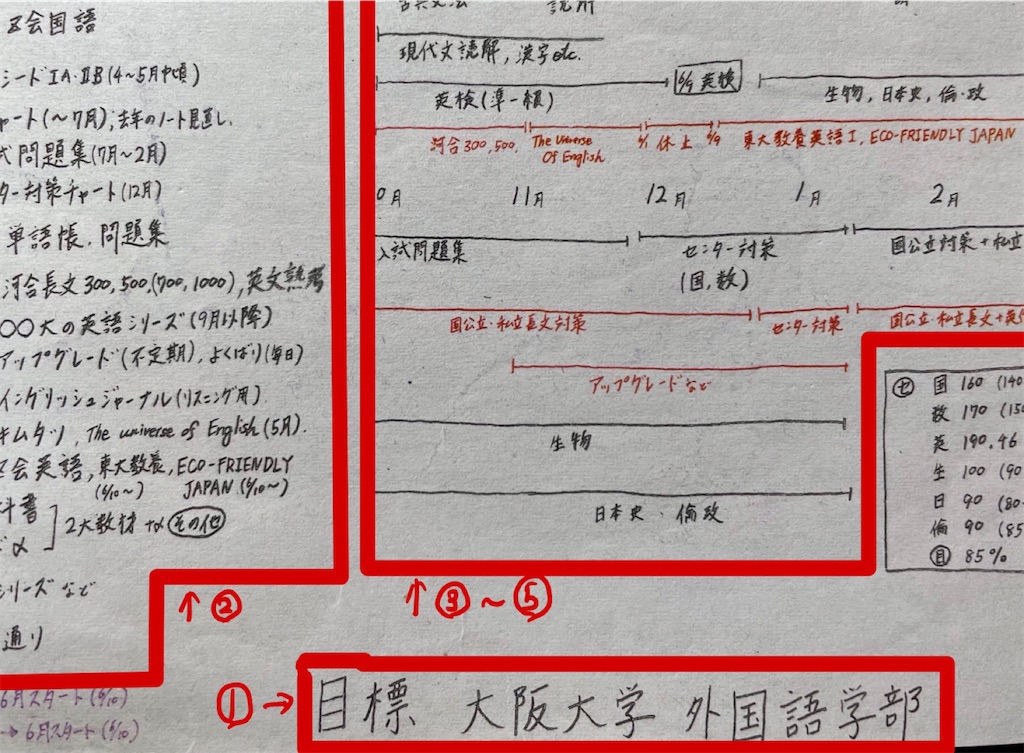 Z会国語
シードⅠA・ⅡB(4〜5月中頃)
ャート(〜7月), 去年のノート見直し.
式問題集(7月〜2月)
ター対策チャート(12月)
単語帳, 問題集
河合長文300, 500, (700, 1000), 英文熟考
〇〇大の英語シリーズ(9月以降)
アップグレード(不定期), よくばり(毎日)
イングリッシュジャーナル(リスニング用)
キムタツ, The universe of English(5月).
Z会英語, 東大教養, ECO-FRIENDLY
(6/10〜) JAPAN (6/10〜)
科書
2大教材 + その他
シリーズなど
通り
6月スタート(6/10)
→ 6月スタート(6/10)
↑②
古典文法 読解
現代文読解, 漢字etc.
英検(準一級) 6/9 英検 生物, 日本史, 倫・政
河合300, 500, The Universe Of English 6/1 休止 6/9 東大教養英語Ⅰ, ECO-FRIENDLY JAPAN
0月 11月 12月 1月 2月
入試問題集 センター対策 国公立対策+私立
(国, 数)
国公立・私立長文対策 センター対策 国公立・私立長文+英作
アップグレードなど
生物
日本史・倫政
↑③〜⑤
セ 国 160 (140
数 170 (150
英 190.46
生 100 (90
日 90 (80
倫 90 (85
目 85%
①→ 目標 大阪大学 外国語学部